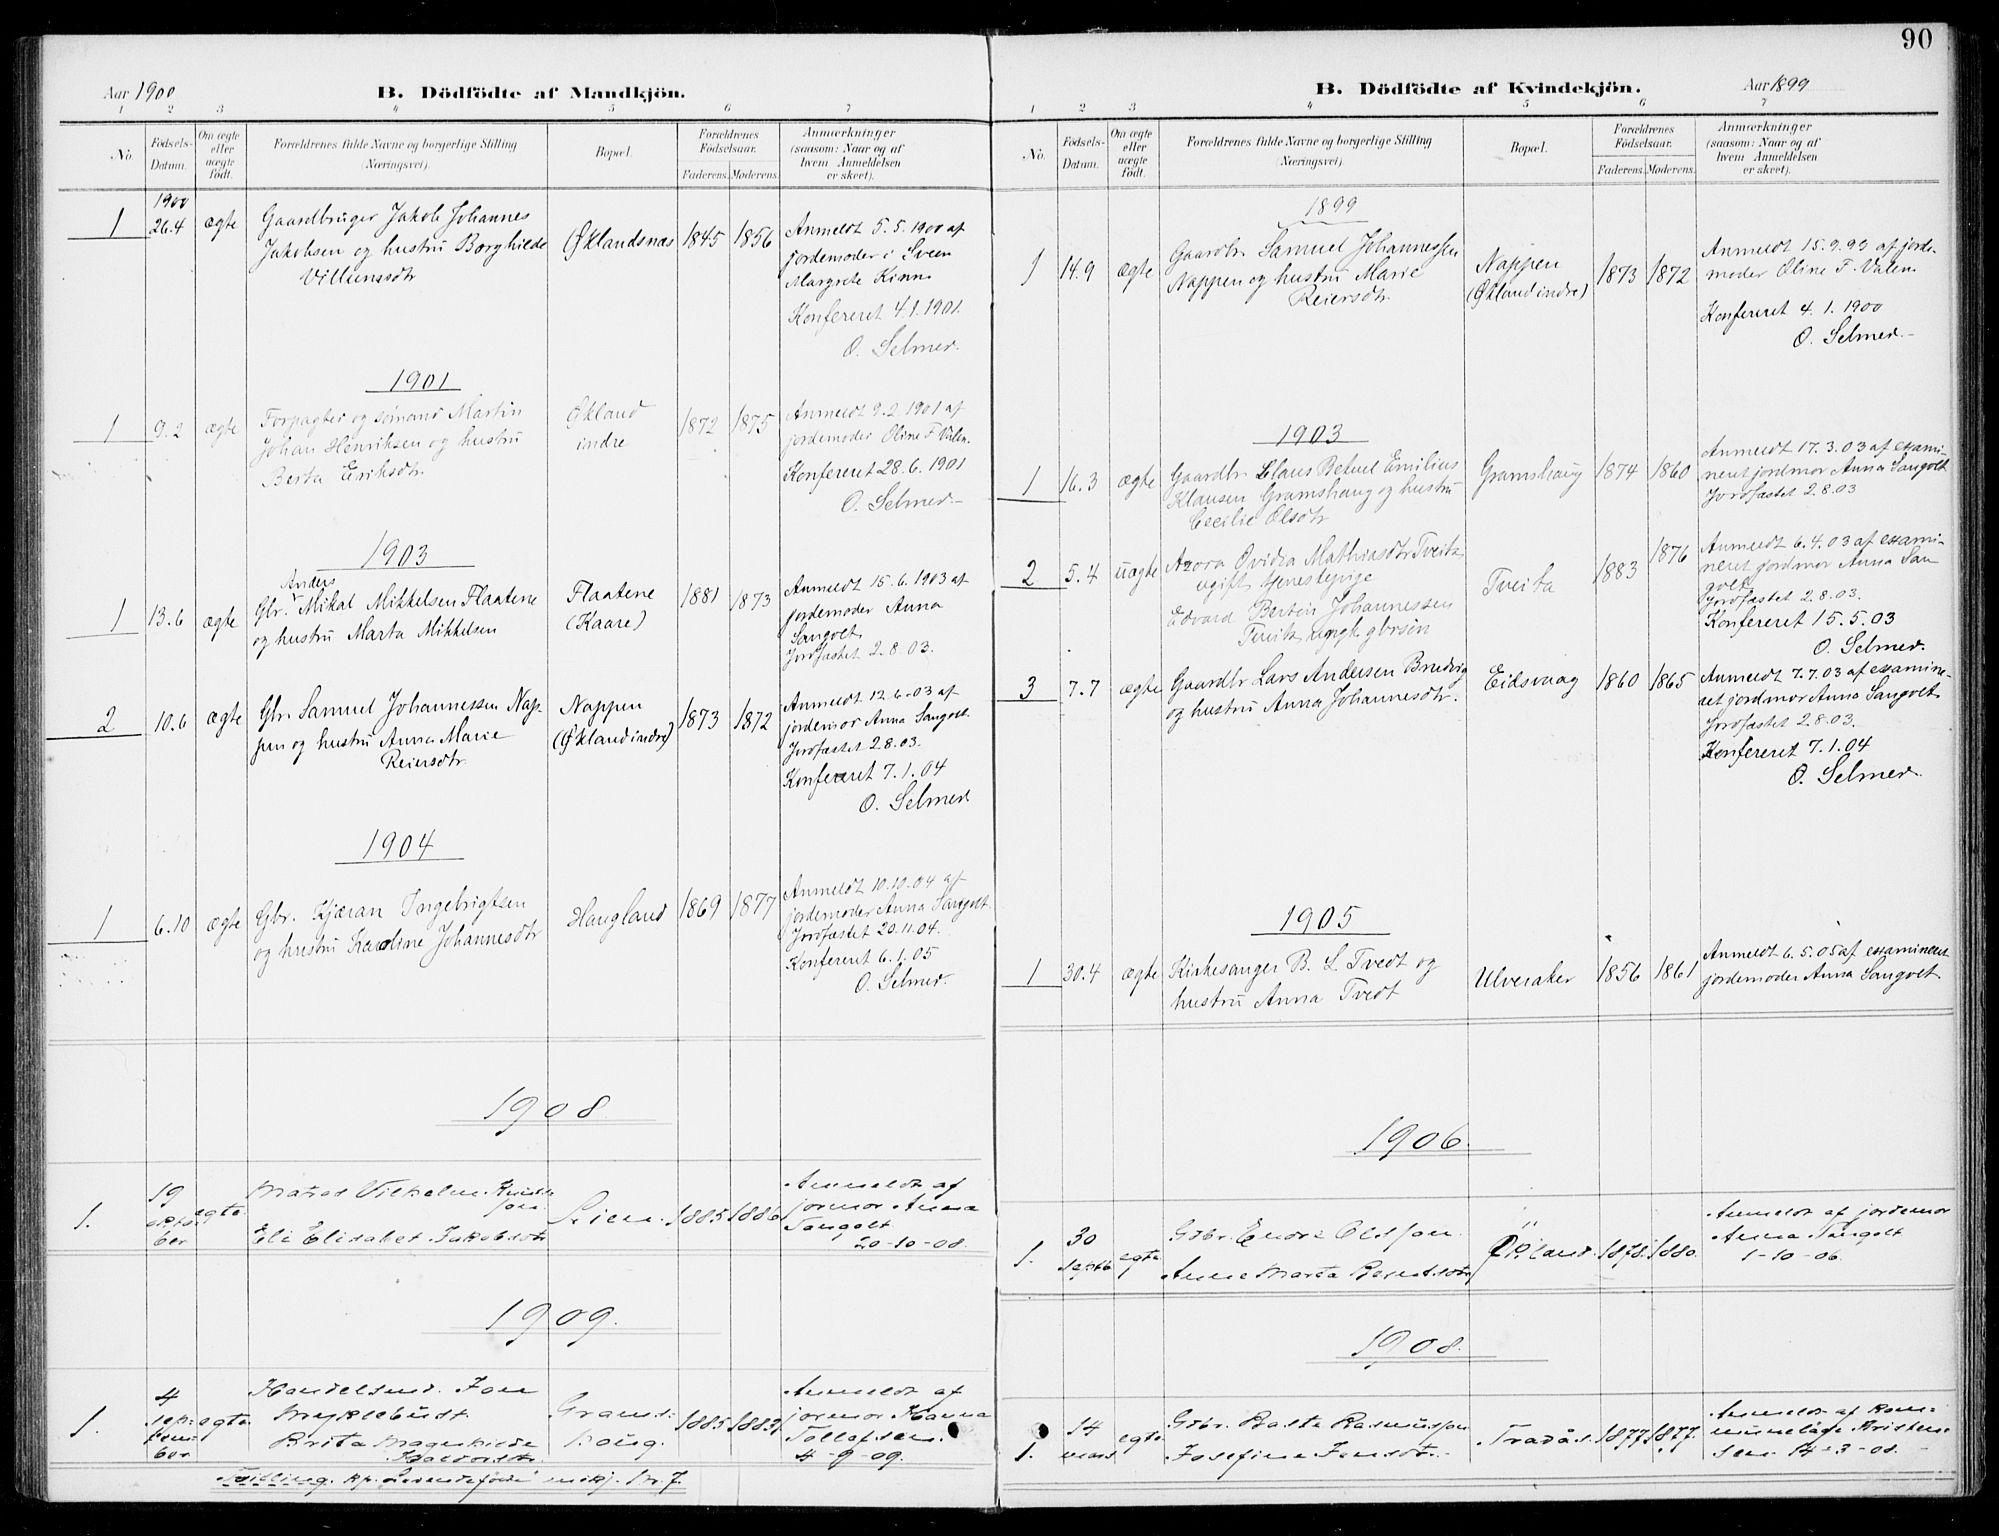 90
Aar 1900
B. Dödfödte af Mandkjön.
1 2 3 4 5 6 7
No.
Födsels-Datum.
Om ægte eller uægte födt.
Forældrenes fulde Navne og borgerlige Stilling (Næringsvei).
Bopæl.
Forældrenes Födselsaar.
Faderens. Moderens.
Anmærkninger (saasom: Naar og af hvem Anmeldelsen er skeet).
1900
1 26.4 ægte Gaardbruger Jakob Johannes
Jakobsen og hustru Borghilde
Villumsdtr
Øklandsnæs 1845 1856
Anmeldt 5.5.1900 af
jordemoder i Sveen
Margrete Kinn
Konfereret 4.1.1901.
O. Selmer.
1901
1 9.2 ægte Forpagter og sömand Martin
Johan Henriksen og hustru
Berta Eriksdtr.
Økland
indre
1872 1875
Anmeldt 9.2.1901 af
jordemoder Oline F. Valen.
Konfereret 28.6.1901
O. Selmer.
1903
1 13.6 ægte Gbr. Anders Mikal Mikkelsen Flaatene
og hustru Marta Mikkelsen
Flaatene
(Kaare)
1881 1873
Anmeldt 15.6.1903 af
jordemoder Anna
Sangolt
Jordfæstet 2.8.03.
2 10.6 ægte Gbr. Samuel Johannessen Nap-
pen og hustru Anna Marie
Reiersdtr.
Nappen
(Økland indre)
1873 1872
Anmeldt 12.6.03 af
jordemor Anna Sangolt.
Jordfæstet 2.8.03.
Konfereret 7.1.04
O. Selmer
1904
1 6.10 ægte Gbr. Kjæran Ingebrigtsen
og hustru Karoline Johannesdtr
Haugland 1869 1877
Anmeldt 10.10.04 af
jordemoder Anna Sangolt.
Jordfæstet 20.11.04.
Konfereret 6.1.05
O. Selmer.
1908.
1. 19
okto
ber
egte. Vilhelm
Eli Elisabet Jakobsdtr
1885 1886
Anmeldt af
jormor Anna
Sangolt
20-10-08.
1909.
1. 4
sep-
tem-
ber
egte Handelsmd. Jon
Myklebust
Brita
Grams-
haug.
1885 1883
Anmeldt af
jormor Hanna
Tollefsen.
4-9-09.
Tvilling. nr. 7.
B. Dödfödte af Kvindekjön.
Aar 1899
1 2 3 4 5 6 7
No.
Födsels-Datum.
Om ægte eller uægte födt.
Forældrenes fulde Navne og borgerlige Stilling (Næringsvei).
Bopæl.
Forældrenes Födselsaar.
Faderens. Moderens.
Anmærkninger (saasom: Naar og af hvem Anmeldelsen er skeet).
1899
1 14.9 ægte Gaardbr. Samuel Johannessen
Nappen og hustru Marie
Reiersdtr.
Nappen
(Økland indre)
1873 1872
Anmeldt 15.9.99 af jorde-
moder Oline F. Valen.
Konfereret 4.1.1900
O. Selmer.
1903
1 16.3 ægte Gaardbr. Claus Betuel Emilius
Klausen Gramshaug og hustru
Cecilie Olsdtr
Gramshaug 1874 1860
Anmeldt 17.3.03 af exami-
neret jordmor Anna Sangolt
Jordfæstet 2.8.03
2 5.4 uægte Azora Ovidia Mathiasdtr Tveita
ugift tjenestepige
Edvard Bertin Johannessen
Tveita ungk. gbrsön
Tveita 1883 1876
Anmeldt 6.4.03 af exami-
neret jordmor Anna San
golt
Jordfæstet 2.8.03.
Konfereret 15.5.03
O. Selmer.
3 7.7 ægte Gaardbr Lars Andersen Bredvig
og hustru Anna Johannesdtr.
Eidsvaag 1860 1865
Anmeldt 7.7.03 af examine-
ret jordmor Anna Sangolt
Jordfæstet 2.8.03.
Konfereret 7.1.04
O. Selmer.
1905
1 30.4 ægte Kirkesanger B. L. Tvedt og
hustru Anna Tvedt
Ulveraker 1856 1861
Anmeldt 6.5.05 af examineret
jordemoder Anna Sangolt.
1906.
1. 30
septb.
egte Gdbr. Endre Olsson.
Anne Marta Berntsdtr
Økland. 1878. 1880.
Anmeldt af jordemor
Anna Sangolt
1-10-06.
1908.
1. 14
mars
egte Gdbr. Rasmusson
Josefine Jensdtr.
Tradås. 1877. 1877.
Anmeldt af kom-
munelæge Kristen-
sen 14-3-08.